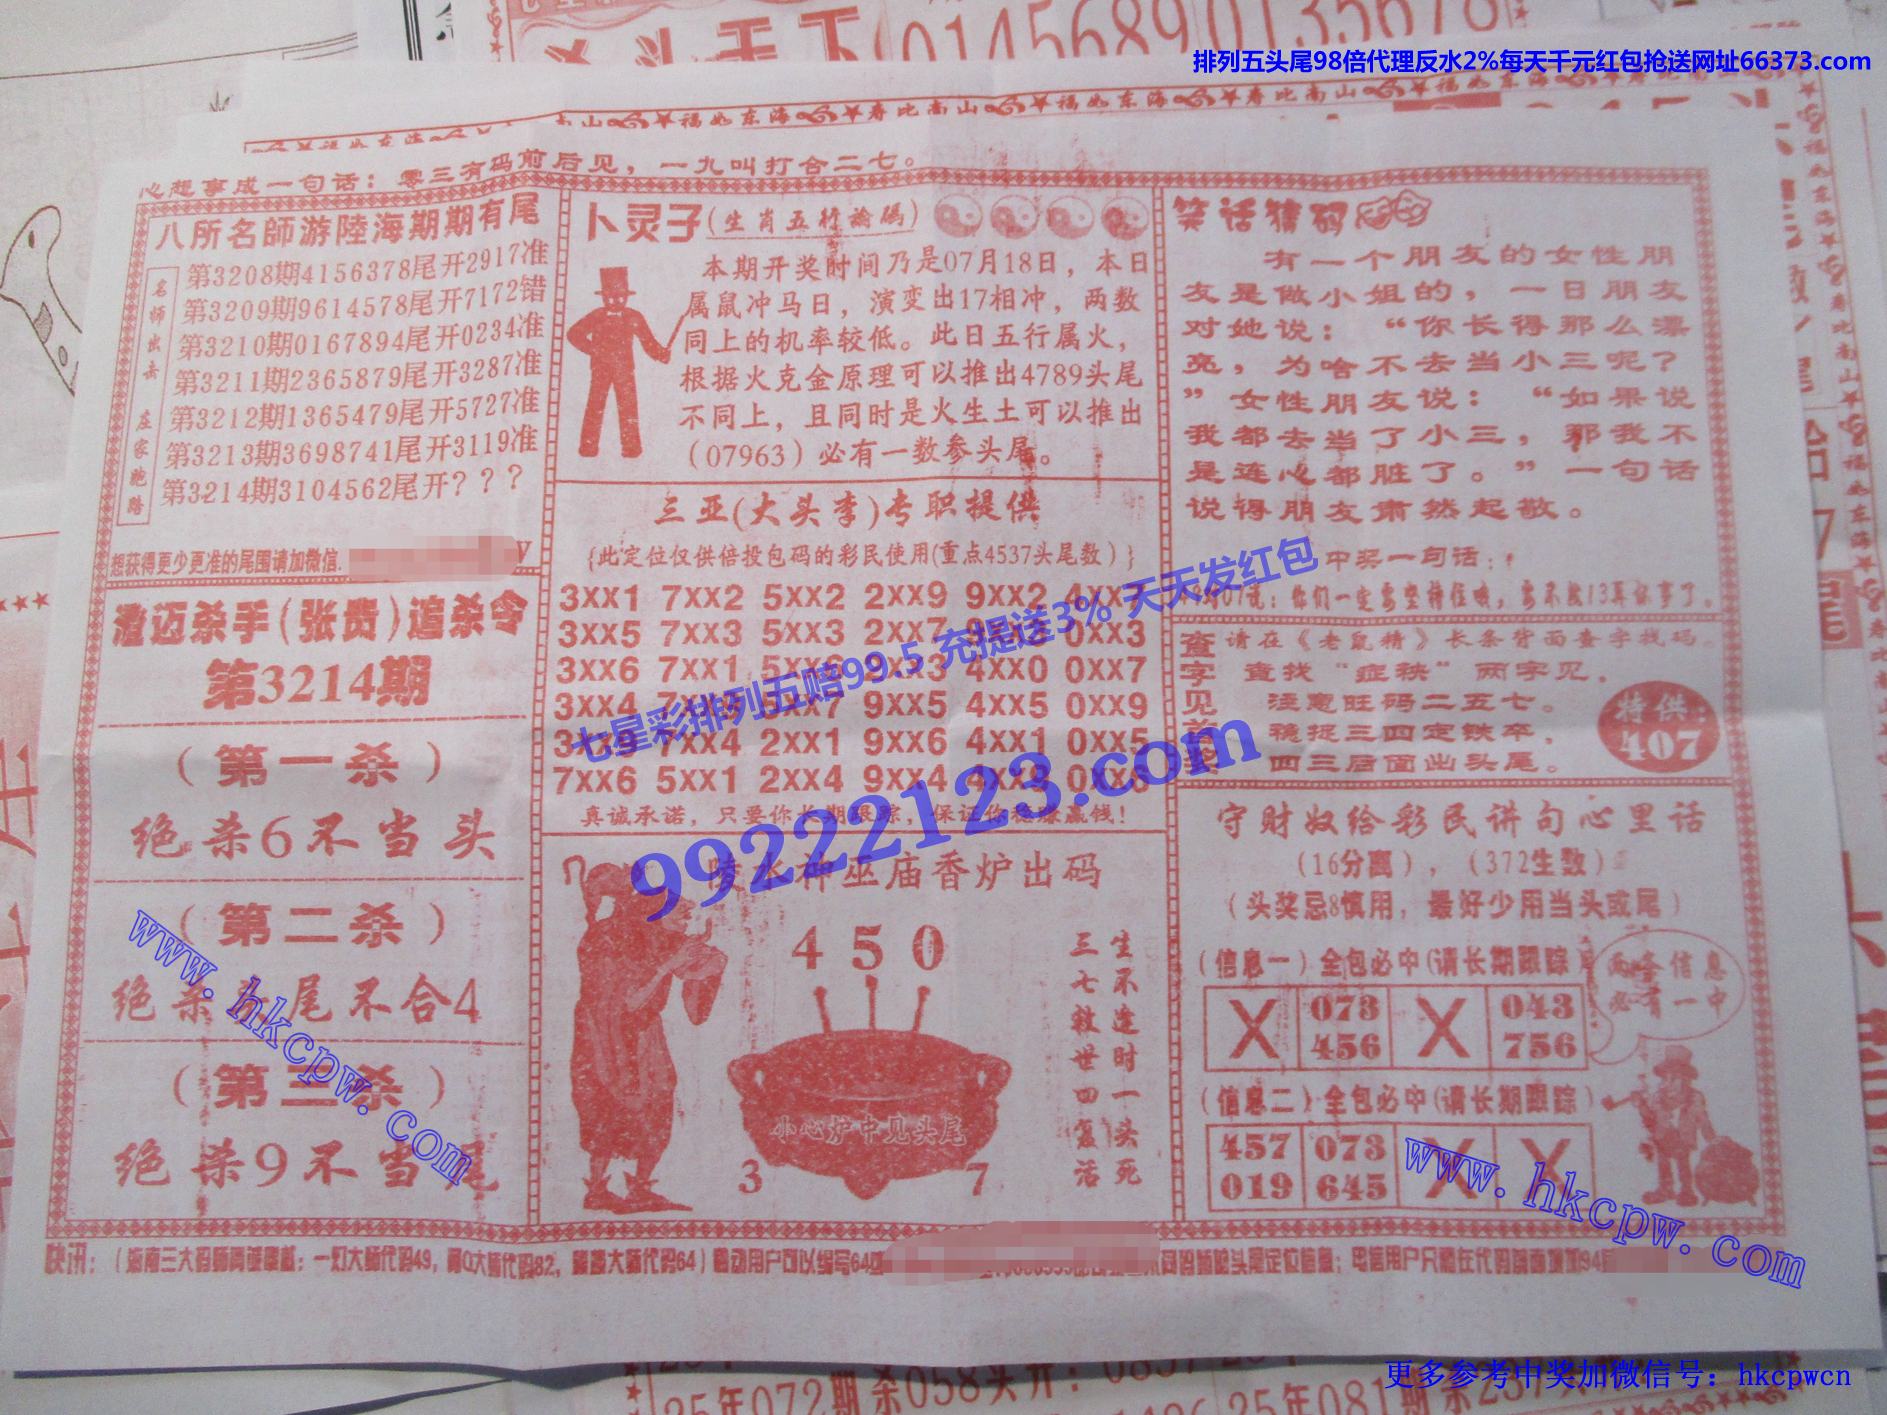 排列五头尾98倍代理反水2%每天千元红包抢送网址66373.com
心想事成一句话：零三有码前后见，一九叫打合二七。
八所名師游陸海期期有尾
名师出击 庄家跑路
第3208期4156378尾开2917准
第3209期9614578尾开7172错
第3210期0167894尾开0234准
第3211期2365879尾开3287准
第3212期1365479尾开5727准
第3213期3698741尾开3119准
第3214期3104562尾开？？？
想获得更少更准的尾围请加微信.
澄迈杀手(张贵)追杀令
第3214期
(第一杀)
绝杀6不当头
(第二杀)
绝杀头尾不合4
(第三杀)
绝杀9不当尾
卜灵子(生肖五行論碼)
本期开奖时间乃是07月18日，本日
属鼠冲马日，演变出17相冲，两数
同上的机率较低。此日五行属火，
根据火克金原理可以推出4789头尾
不同上，且同时是火生土可以推出
（07963）必有一数参头尾。
三亚(大头李)专职提供
{此定位仅供倍投包码的彩民使用(重点4537头尾数）}
3XX1 7XX2 5XX2 2XX9 9XX2
3XX5 7XX3 5XX3 2XX7 0XX3
3XX6 7XX1 4XX0 0XX7
3XX4 9XX5 4XX5 0XX9
7XX4 2XX1 9XX6 4XX1 0XX5
7XX6 5XX1 2XX4 9XX4
真诚承诺，只要你长期跟踪，保证你稳赚赢钱！
陵水神巫庙香炉出码
4 5 0
生不逢时一头死
三七救世四复活
小心炉中见头尾
3 7
笑话猜码
有一个朋友的女性朋
友是做小姐的，一日朋友
对她说：“你长得那么漂
亮，为啥不去当小三呢？
”女性朋友说：“如果说
我都去当了小三，那我不
是连心都脏了。”一句话
说得朋友肃然起敬。
中奖一句话：
请在《老鼠精》长条背面查字找码
查找“症秧”两字见，
注意旺码二五七。
稳捉三四定铁卒，
四三后面出头尾。
特供：
407
守财奴给彩民讲句心里话
（16分离），（372生数）
（头奖忌8慎用，最好少用当头或尾）
(信息一) 全包必中(请长期跟踪)
X 073 456 X 043 756
两条信息
必有一中
(信息二) 全包必中(请长期跟踪)
457 019 073 645 X X
七星彩排列五赔99.5 充提送3% 天天发红包
99222123.com
www.hkcpw.com
www.hkcpw.com
更多参考中奖加微信号：hkcpwcn